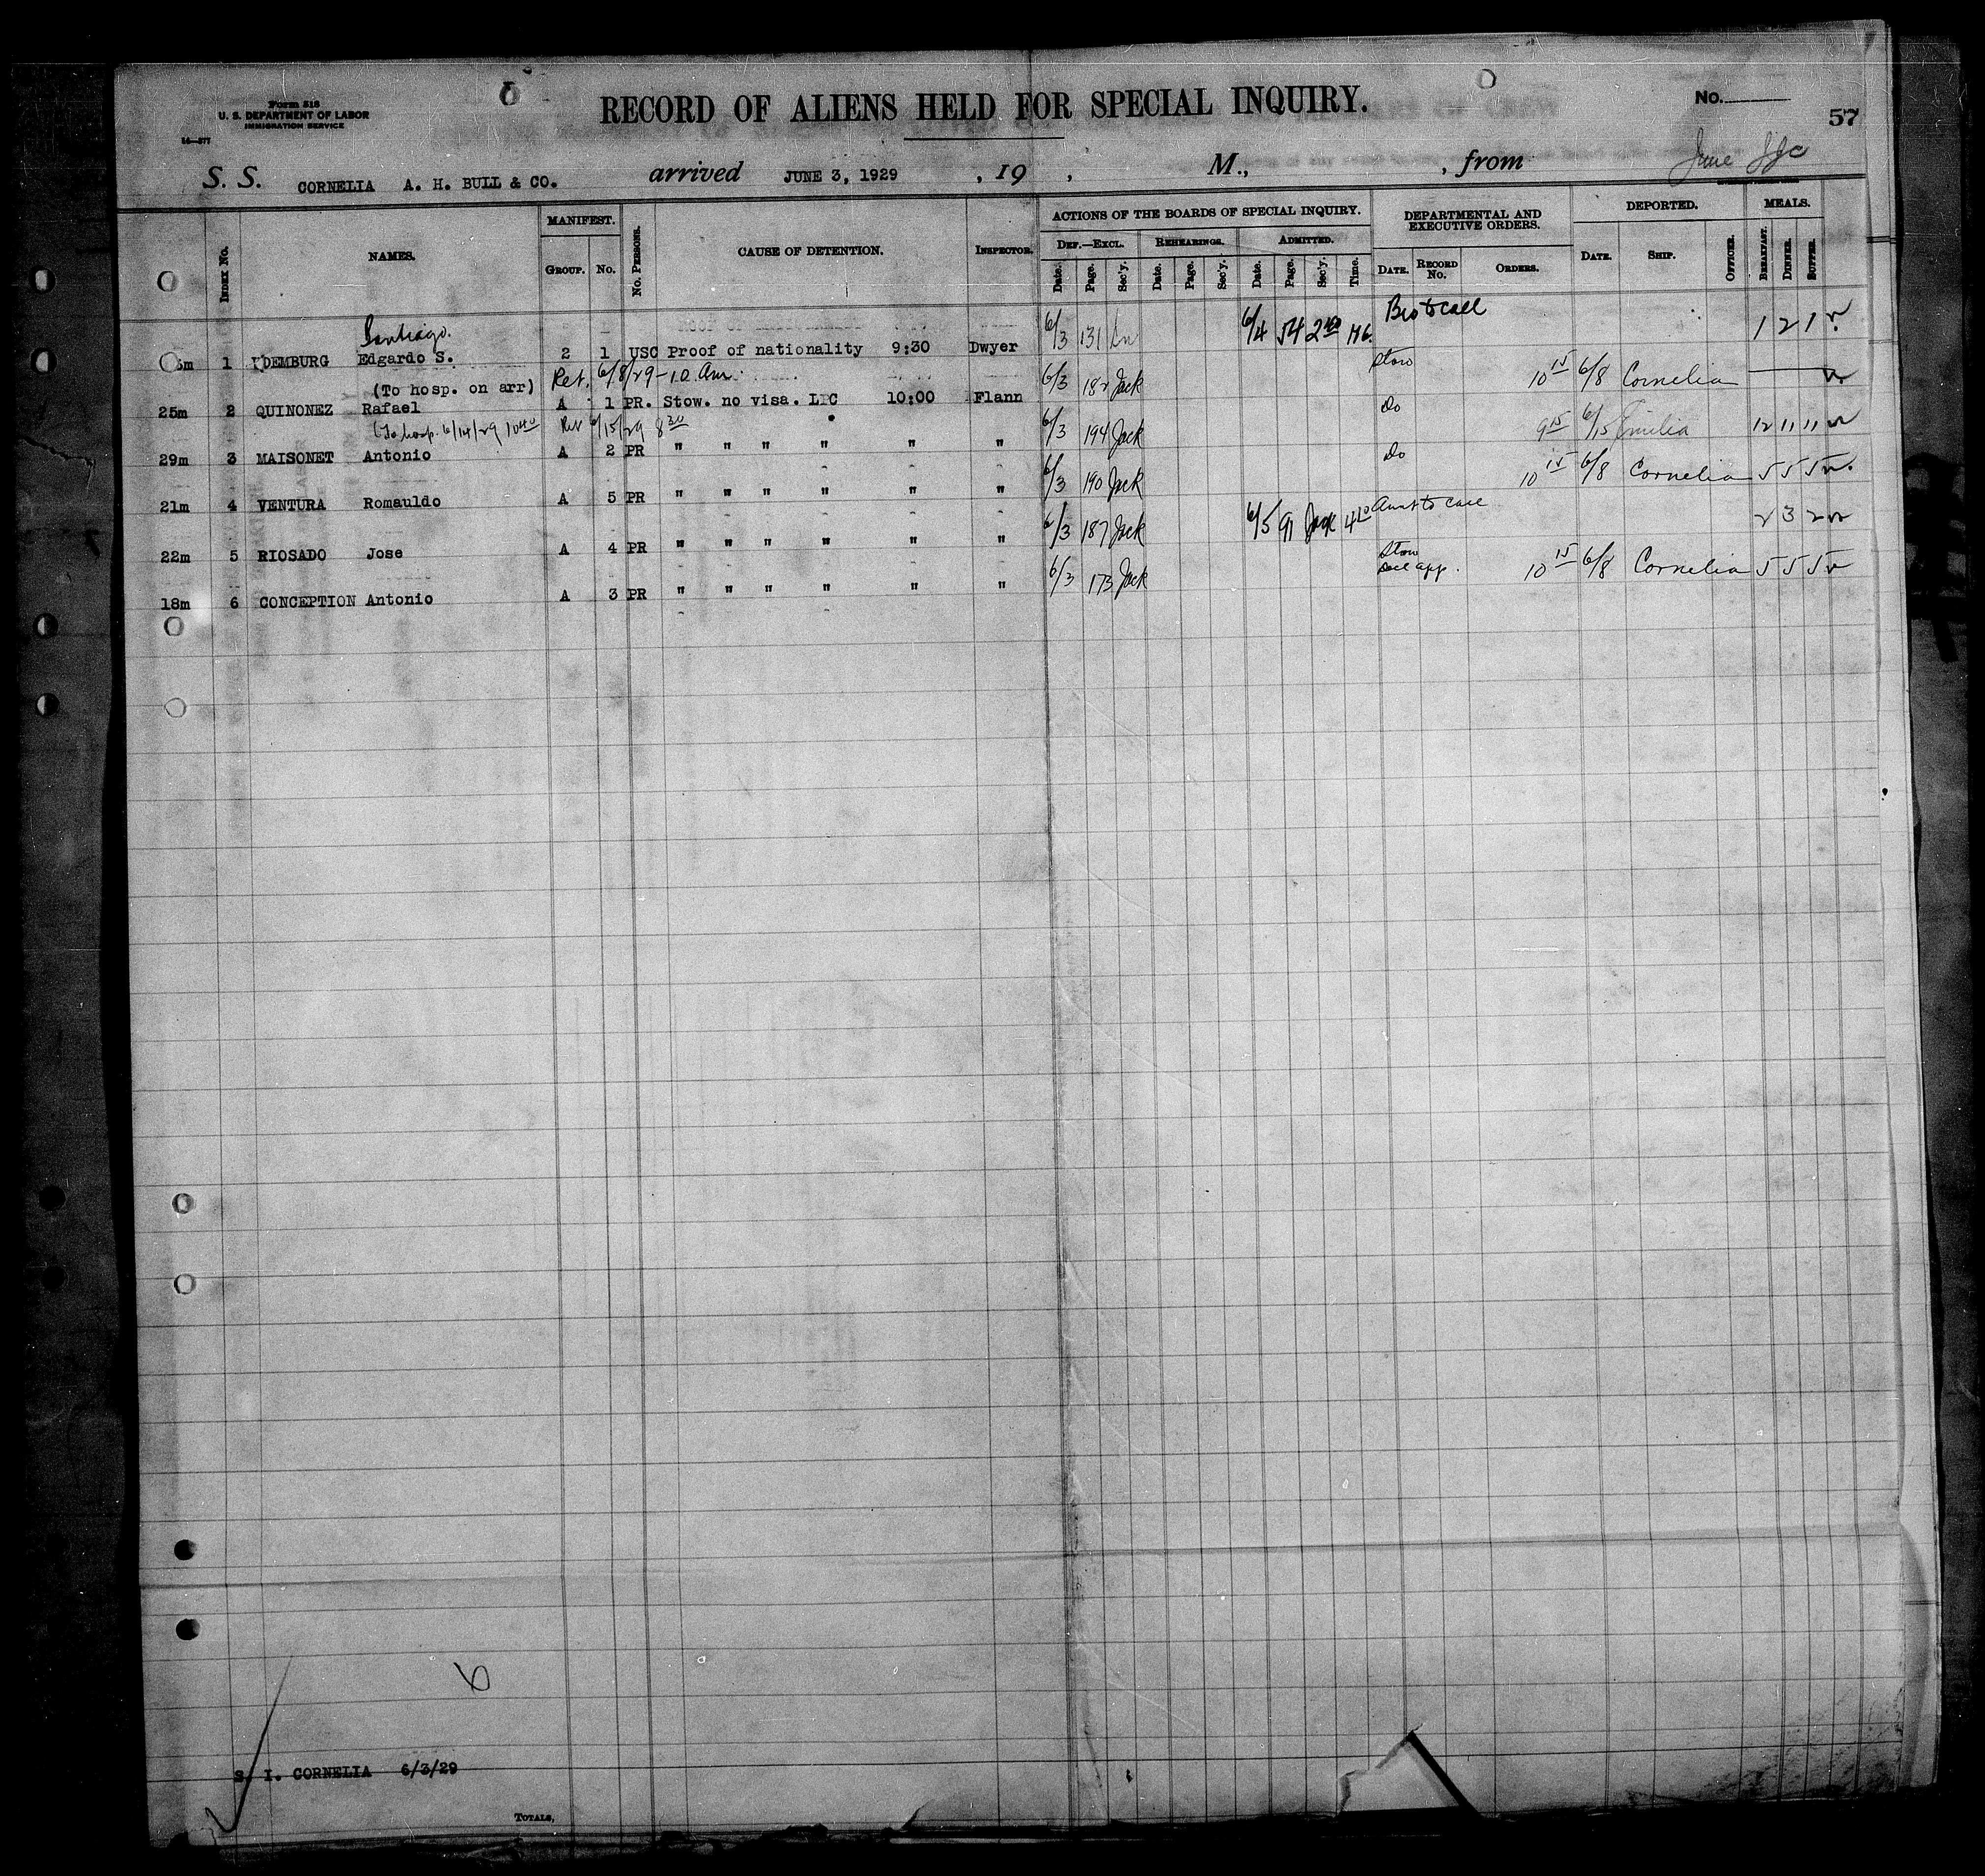 Form 518
U. S. DEPARTMENT OF LABOR
IMMIGRATION SERVICE
RECORD OF ALIENS HELD FOR SPECIAL INQUIRY.
No.
57
S. S. CORNELIA A. H. BULL & CO. arrived JUNE 3, 1929 , 19 , M., , from June
INDEX No. NAMES. MANIFEST. GROUP. No. No. PERSONS. CAUSE OF DETENTION. INSPECTOR. ACTIONS OF THE BOARDS OF SPECIAL INQUIRY. DEPARTMENTAL AND EXECUTIVE ORDERS. DEPORTED. MEALS.
DEF.—EXCL. REHEARINGS. ADMITTED.
Date. Page. Sec'y. Date. Page. Sec'y. Date. Page. Sec'y. Time. DATE. RECORD No. ORDERS. DATE. SHIP. OFFICER. BREAKFAST. DINNER. SUPPER.
Santiago.
1 DEMBURG Edgardo S. 2 1 USC Proof of nationality 9:30 Dwyer 6/3 131 6/4 54 2 HG. Bro to call 1 2 1
(To hosp. on arr) Ret. 6/8/29 - 10 am.
25m 2 QUINONEZ Rafael A 1 PR. Stow. no visa. LPC 10:00 Flann 6/3 182 Jack Stow 10 15 6/8 Cornelia
(To hosp. 6/14/29 10 40 Ret 6/15/29 8 30
29m 3 MAISONET Antonio A 2 PR " " " " " " 6/3 194 Jack Do 9 15 6/15 Emilia 12 11 11
21m 4 VENTURA Romauldo A 5 PR " " " " " " 6/3 190 Jack Do 10 15 6/8 Cornelia 5 5 5
22m 5 RIOSADO Jose A 4 PR " " " " " " 6/3 187 Jack 6/5 91 Jack 4 10 Aunt to call 2 3 2
18m 6 CONCEPTION Antonio A 3 PR " " " " " " 6/3 173 Jack Stow app. 10 15 6/8 Cornelia 5 5 5
6
S. I. CORNELIA 6/3/29
TOTALS,